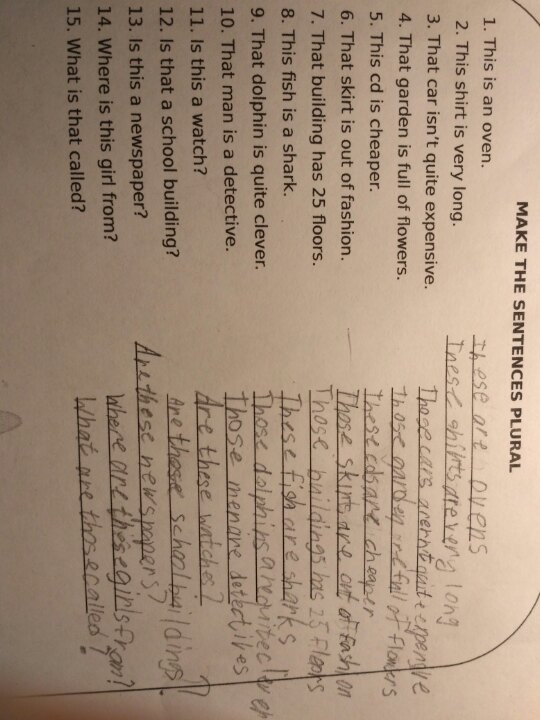 MAKE THE SENTENCES PLURAL
1. This is an oven. These are ovens
2. This shirt is very long. These shirts are very long
3. That car isn't quite expensive. Those cars arernt quite expensive
4. That garden is full of flowers. Those garden are full of flowers
5. This cd is cheaper. These cds are cheaper
6. That skirt is out of fashion. Those skirts are out of fashion
7. That building has 25 floors. Those buildings has 25 floors
8. This fish is a shark. These fish are sharks
9. That dolphin is quite clever. Those dolphins are quite clever
10. That man is a detective. Those men are detectives
11. Is this a watch? Are these watches?
12. Is that a school building? Are those school buildings?
13. Is this a newspaper? Are these newspapers?
14. Where is this girl from? Where are these girls from?
15. What is that called? What are those called?